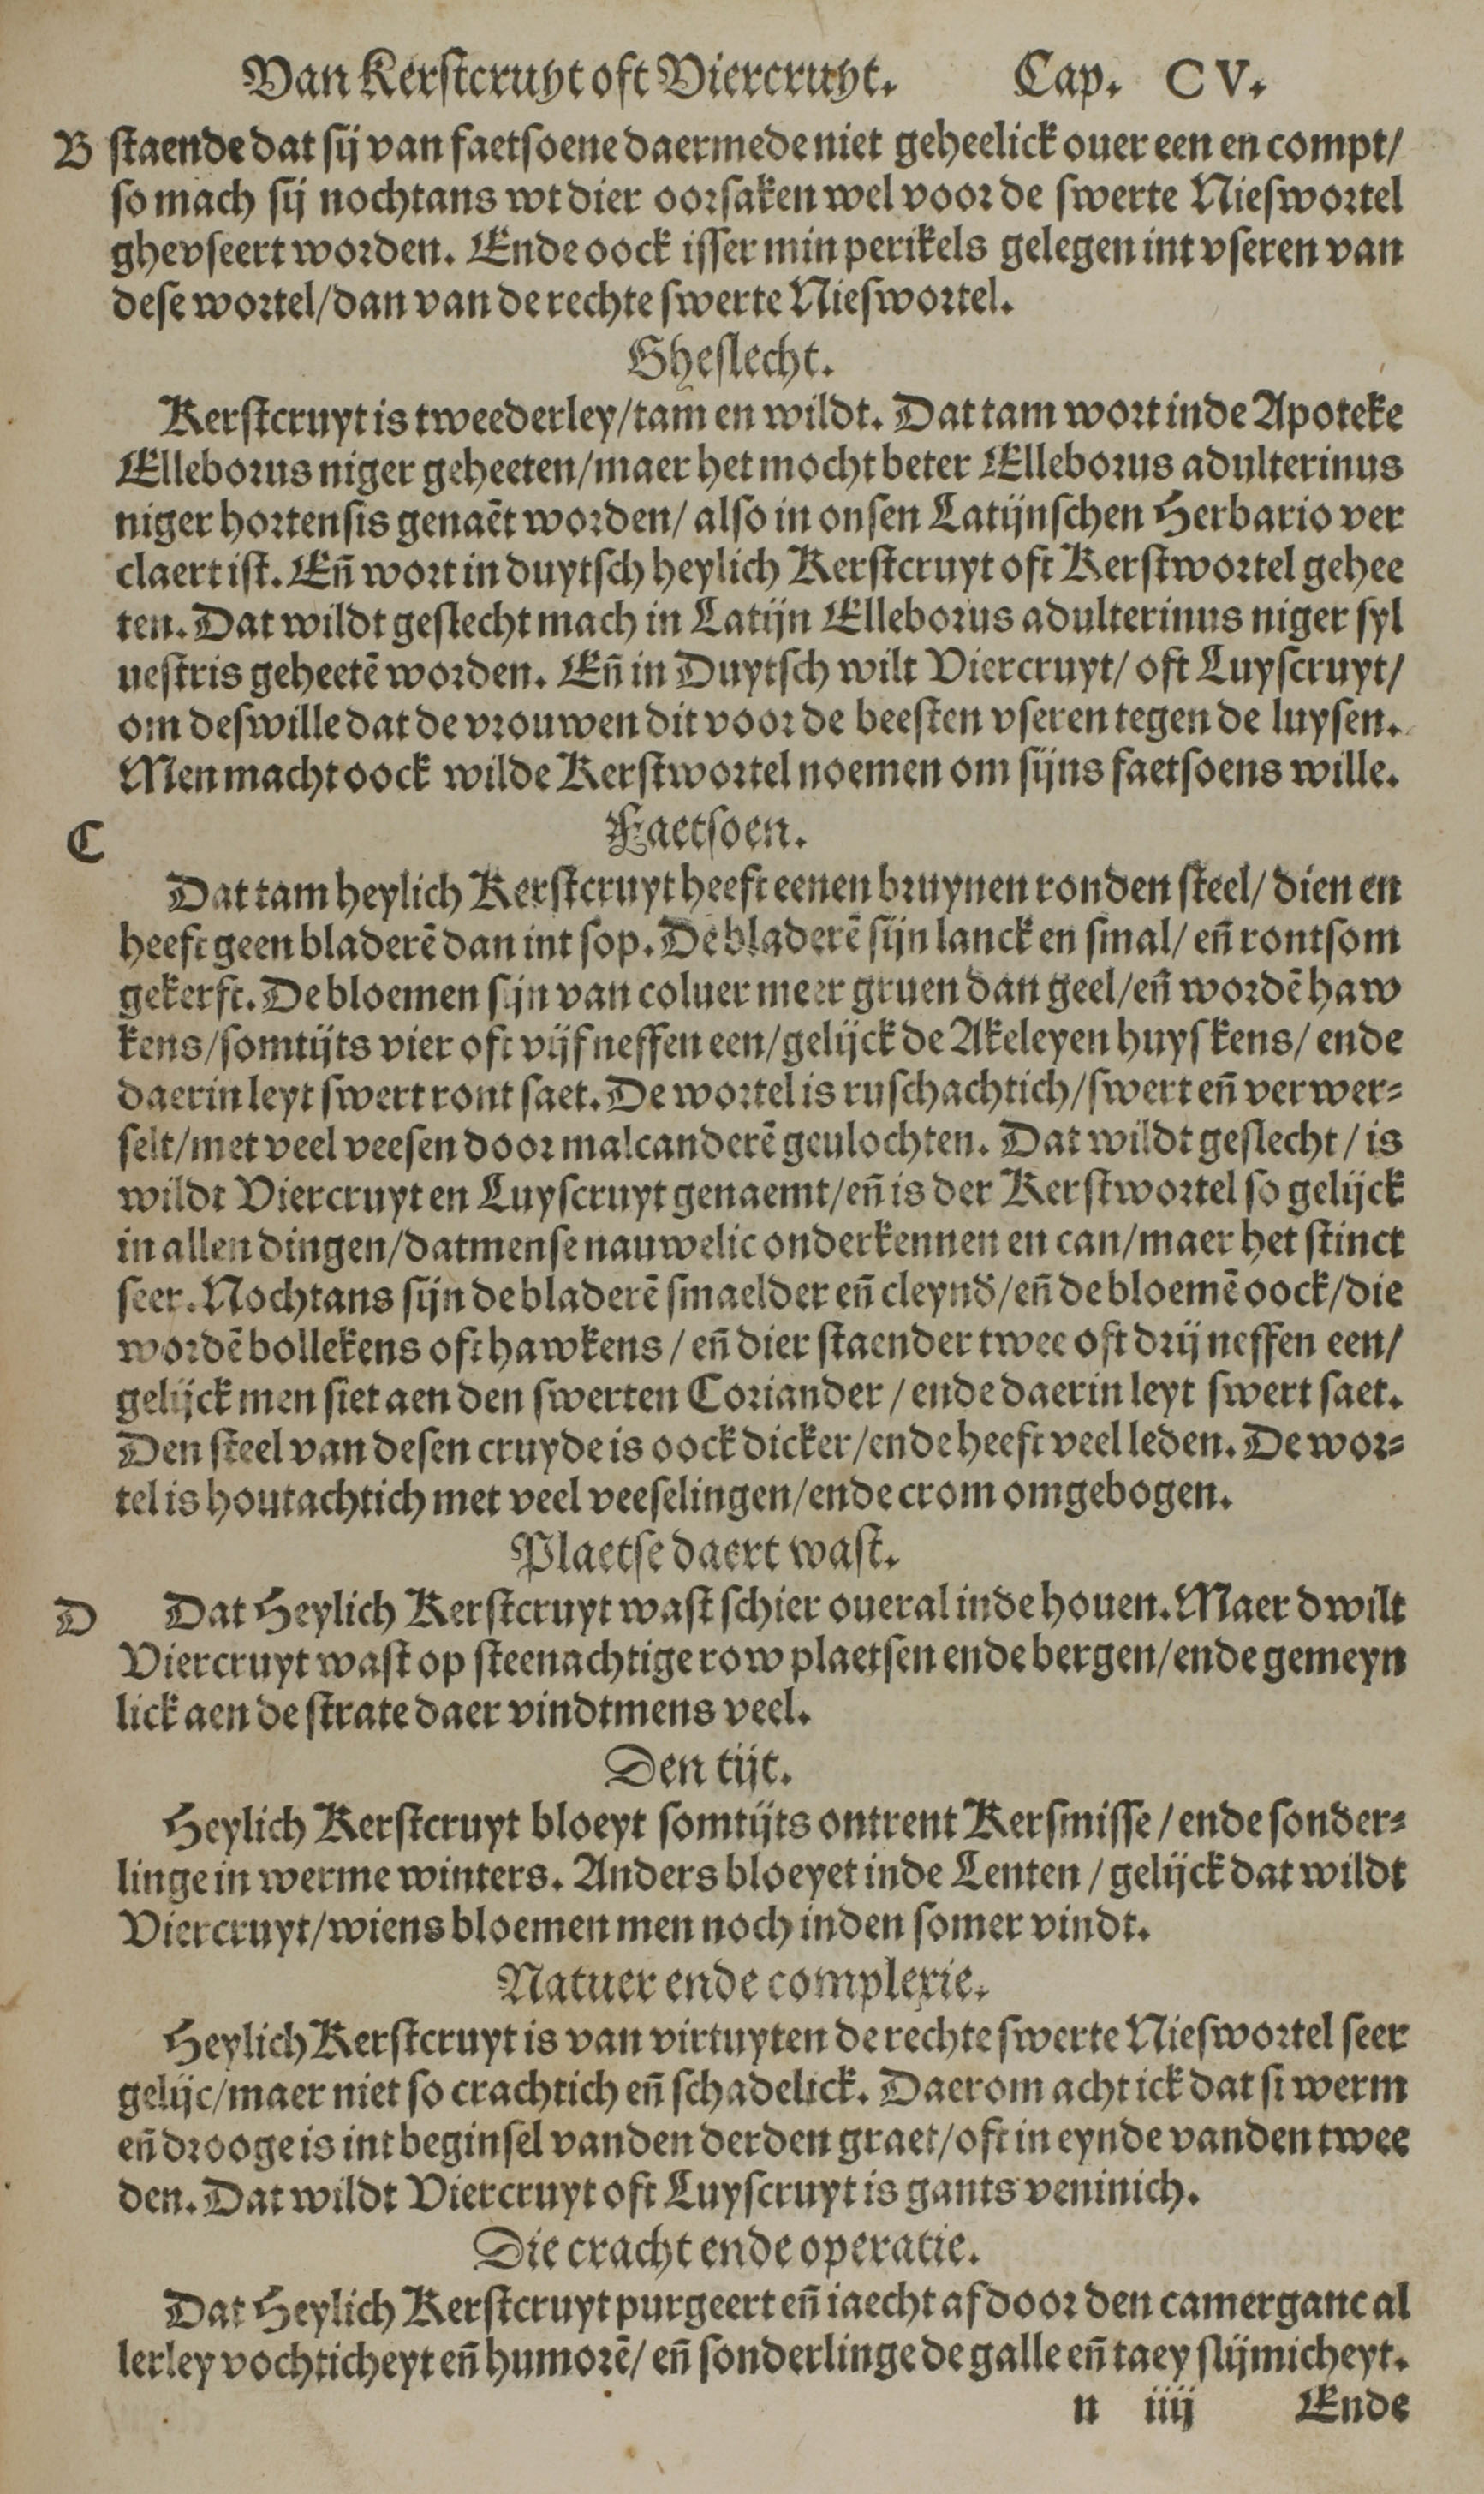 Van Kerstcruyt oft Viercruyt. Cap. CV.
B staende dat sij van faetsoene daermede niet geheelick ouer een en compt/
so mach sij nochtans wt dier oorsaken wel voor de swerte Nieswortel
ghevseert worden. Ende oock isser min perikels gelegen int vseren van
dese wortel/dan van de rechte swerte Nieswortel.
Gheslecht.
Kerstcruyt is tweederley/tam en wildt. Dat tam wort inde Apoteke
Elleborus niger geheeten/maer het mocht beter Elleborus adulterinus
niger hortensis genaẽt worden/ also in onsen Latijnschen Herbario ver
claert ist. Eñ wort in duytsch heylich Kerstcruyt oft Kerstwortel gehee
ten. Dat wildt geslecht mach in Latijn Elleborus adulterinus niger syl
uestris geheetẽ worden. Eñ in Duytsch wilt Viercruyt/ oft Luyscruyt/
om deswille dat de vrouwen dit voor de beesten vseren tegen de luysen.
Men macht oock wilde Kerstwortel noemen om sijns faetsoens wille.
C Faetsoen.
Dat tam heylich Kerstcruyt heeft eenen bruynen ronden steel/ dien en
heeft geen bladerẽ dan int sop. De bladerẽ sijn lanck en smal/ eñ rontsom
gekerft. De bloemen sijn van coluer meer gruen dan geel/eñ wordẽ haw
kens/somtijts vier oft vijf neffen een/gelijck de Akeleyen huyskens/ ende
daerin leyt swert ront saet. De wortel is ruschachtich/swert eñ verwer-
selt/met veel veesen door malcanderẽ geulochten. Dat wildt geslecht/ is
wildt Viercruyt en Luyscruyt genaemt/eñ is der Kerstwortel so gelijck
in allen dingen/datmense nauwelic onderkennen en can/maer het stinct
seer. Nochtans sijn de bladerẽ smaelder eñ cleynd̃/eñ de bloemẽ oock/die
wordẽ bollekens oft hawkens/ eñ dier staender twee oft drij neffen een/
gelijck men siet aen den swerten Coriander/ ende daerin leyt swert saet.
Den steel van desen cruyde is oock dicker/ende heeft veel leden. De wor-
tel is houtachtich met veel veeselingen/ende crom omgebogen.
Plaetse daert wast.
D Dat Heylich Kerstcruyt wast schier oueral inde houen. Maer dwilt
Viercruyt wast op steenachtige row plaetsen ende bergen/ende gemeyn
lick aen de strate daer vindtmens veel.
Den tijt.
Heylich Kerstcruyt bloeyt somtijts ontrent Kersmisse/ ende sonder-
linge in werme winters. Anders bloeyet inde Lenten/ gelijck dat wildt
Viercruyt/wiens bloemen men noch inden somer vindt.
Natuer ende complexie.
Heylich Kerstcruyt is van virtuyten de rechte swerte Nieswortel seer
gelijc/maer niet so crachtich eñ schadelick. Daerom acht ick dat si werm
eñ drooge is int beginsel vanden derden graet/oft in eynde vanden twee
den. Dat wildt Viercruyt oft Luyscruyt is gants veninich.
Die cracht ende operatie.
Dat Heylich Kerstcruyt purgeert eñ iaecht af door den camerganc al
lerley vochticheyt eñ humorẽ/ eñ sonderlinge de galle eñ taey slijmicheyt.
n iiij Ende